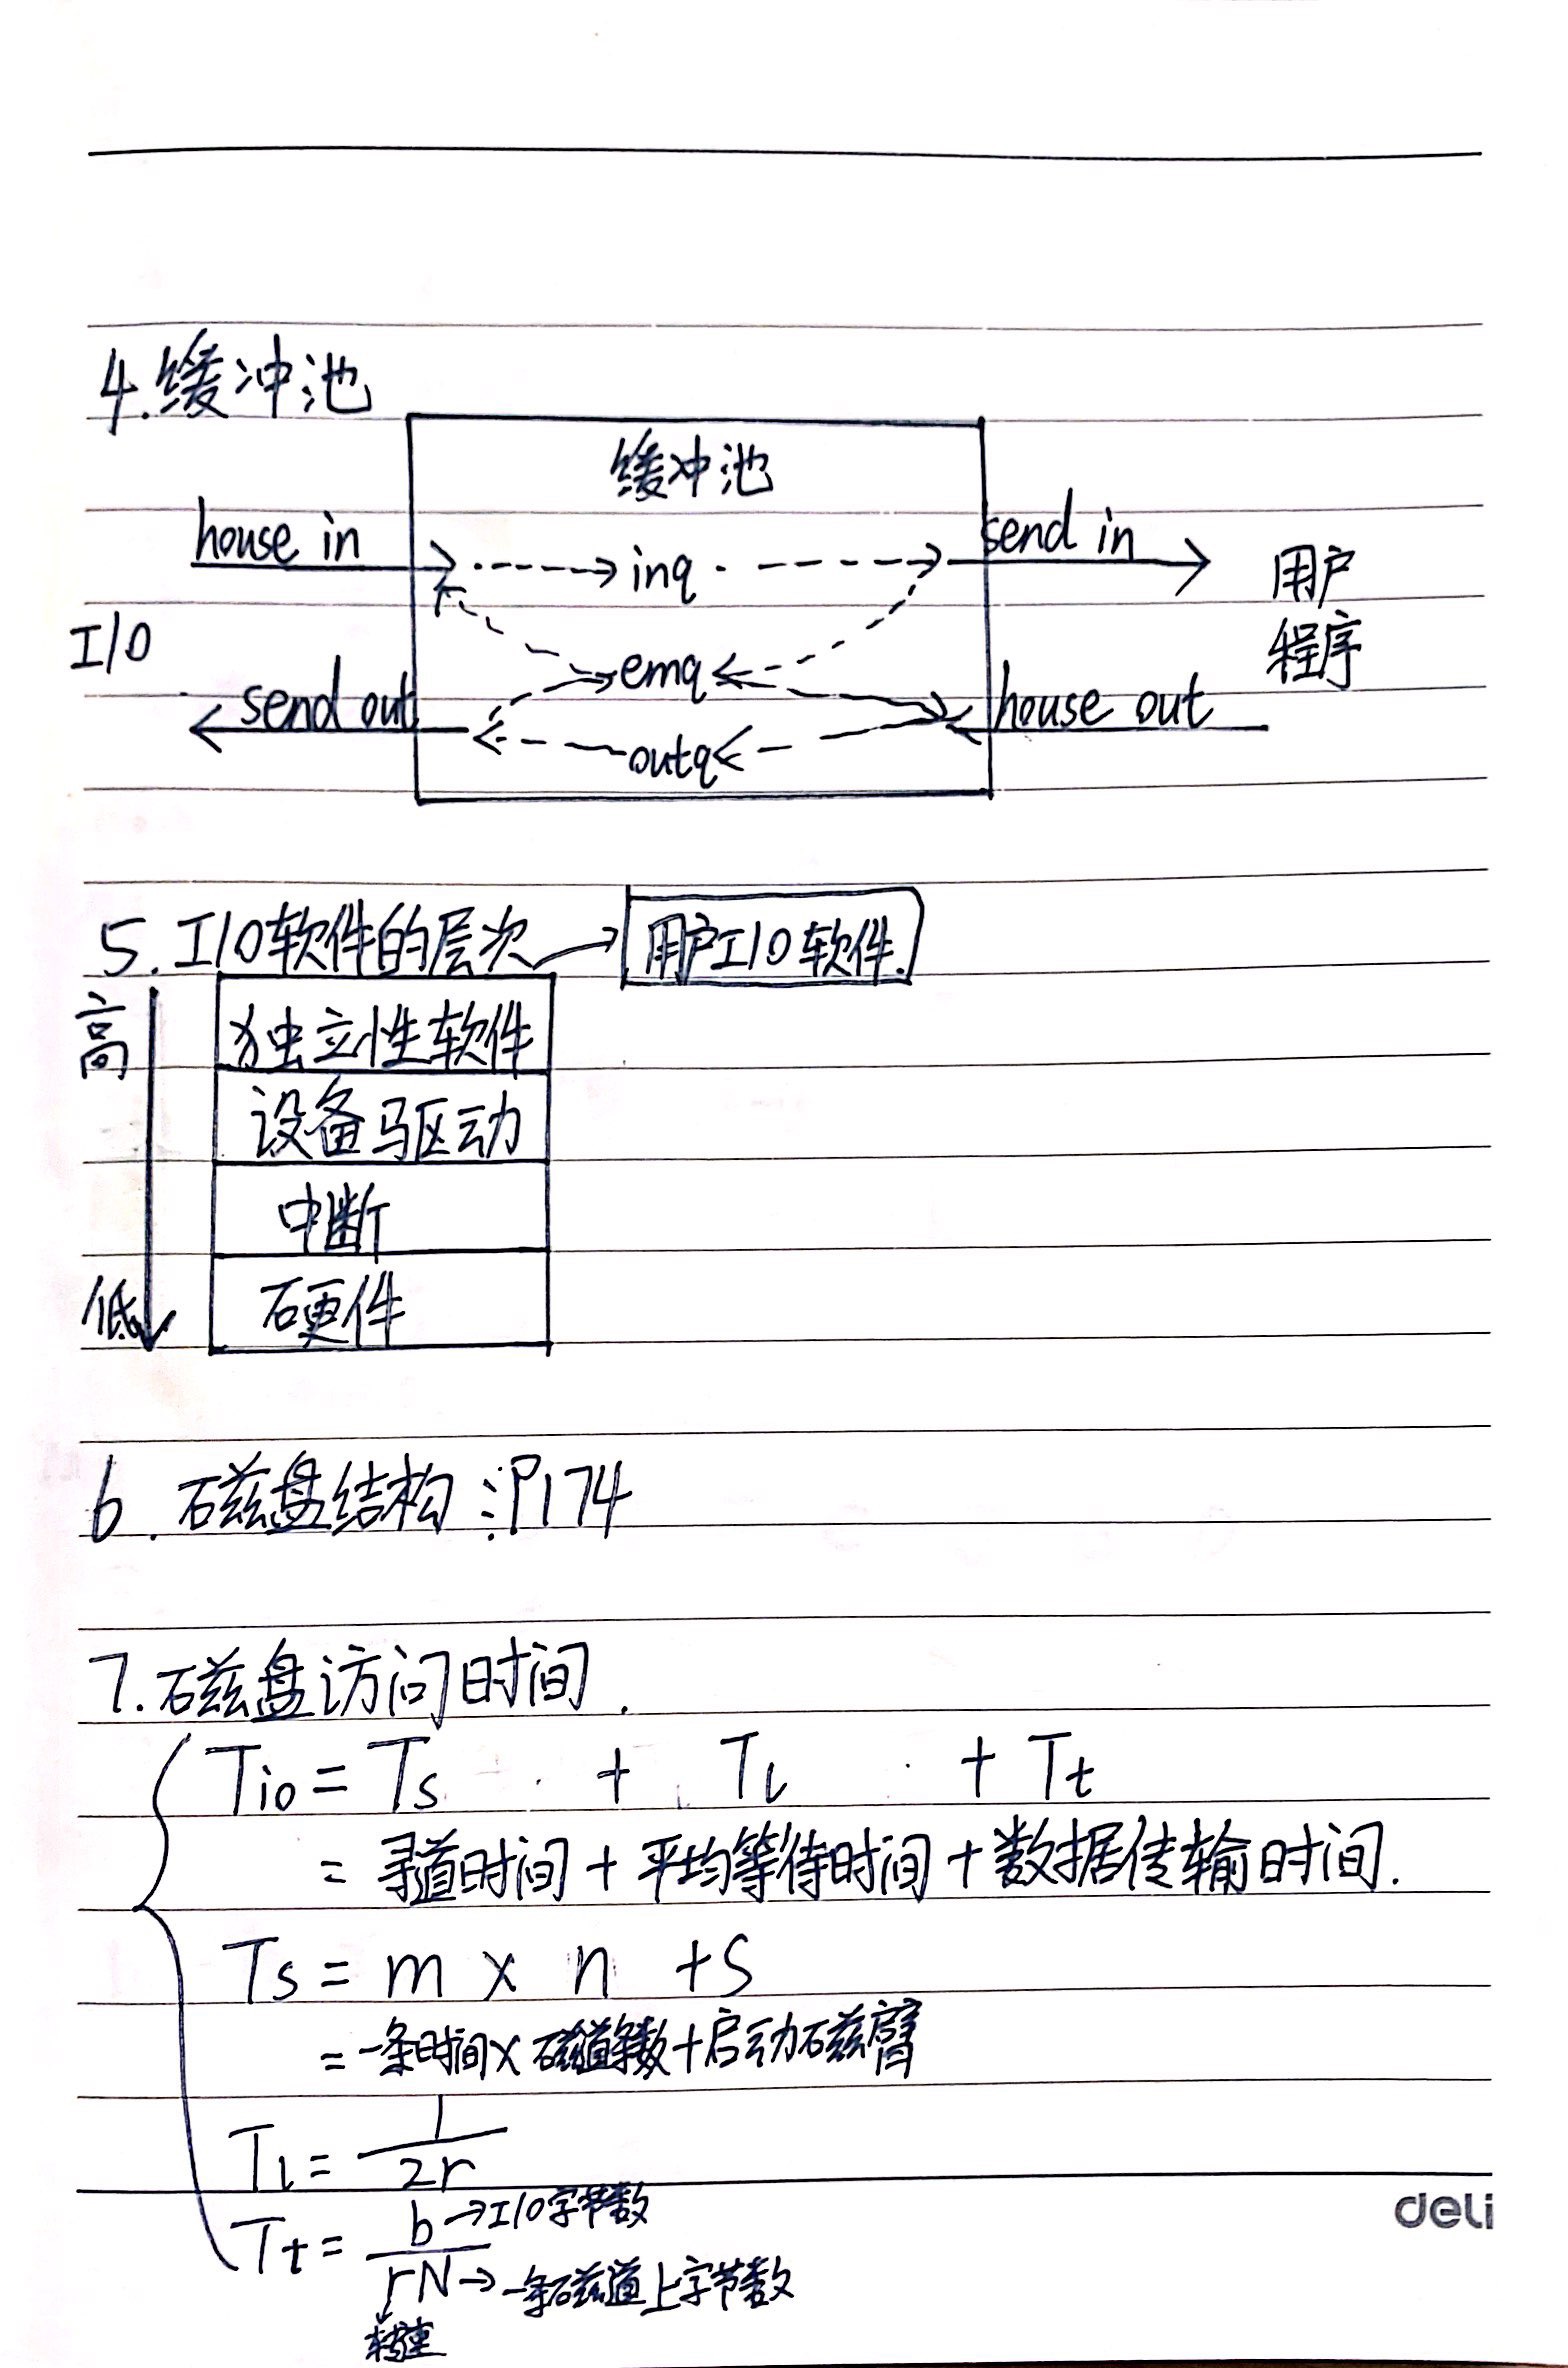 4.缓冲池
缓冲池
house in
send in
inq
用户
程序
I/O
emq
send out
house out
outq
5. I/O软件的层次 → 用户I/O软件.
高
独立性软件
设备驱动
中断
低
硬件
6. 磁盘结构:P174
7.磁盘访问时间.
Tio = Ts + Tl + Tt
= 寻道时间 + 平均等待时间 + 数据传输时间.
Ts = m × n + S
= 一条时间 × 磁道条数 + 启动磁臂
Tl = 1/2r
Tt = b/rN
b → I/O字节数
N → 一条磁道上字节数
转速
deli